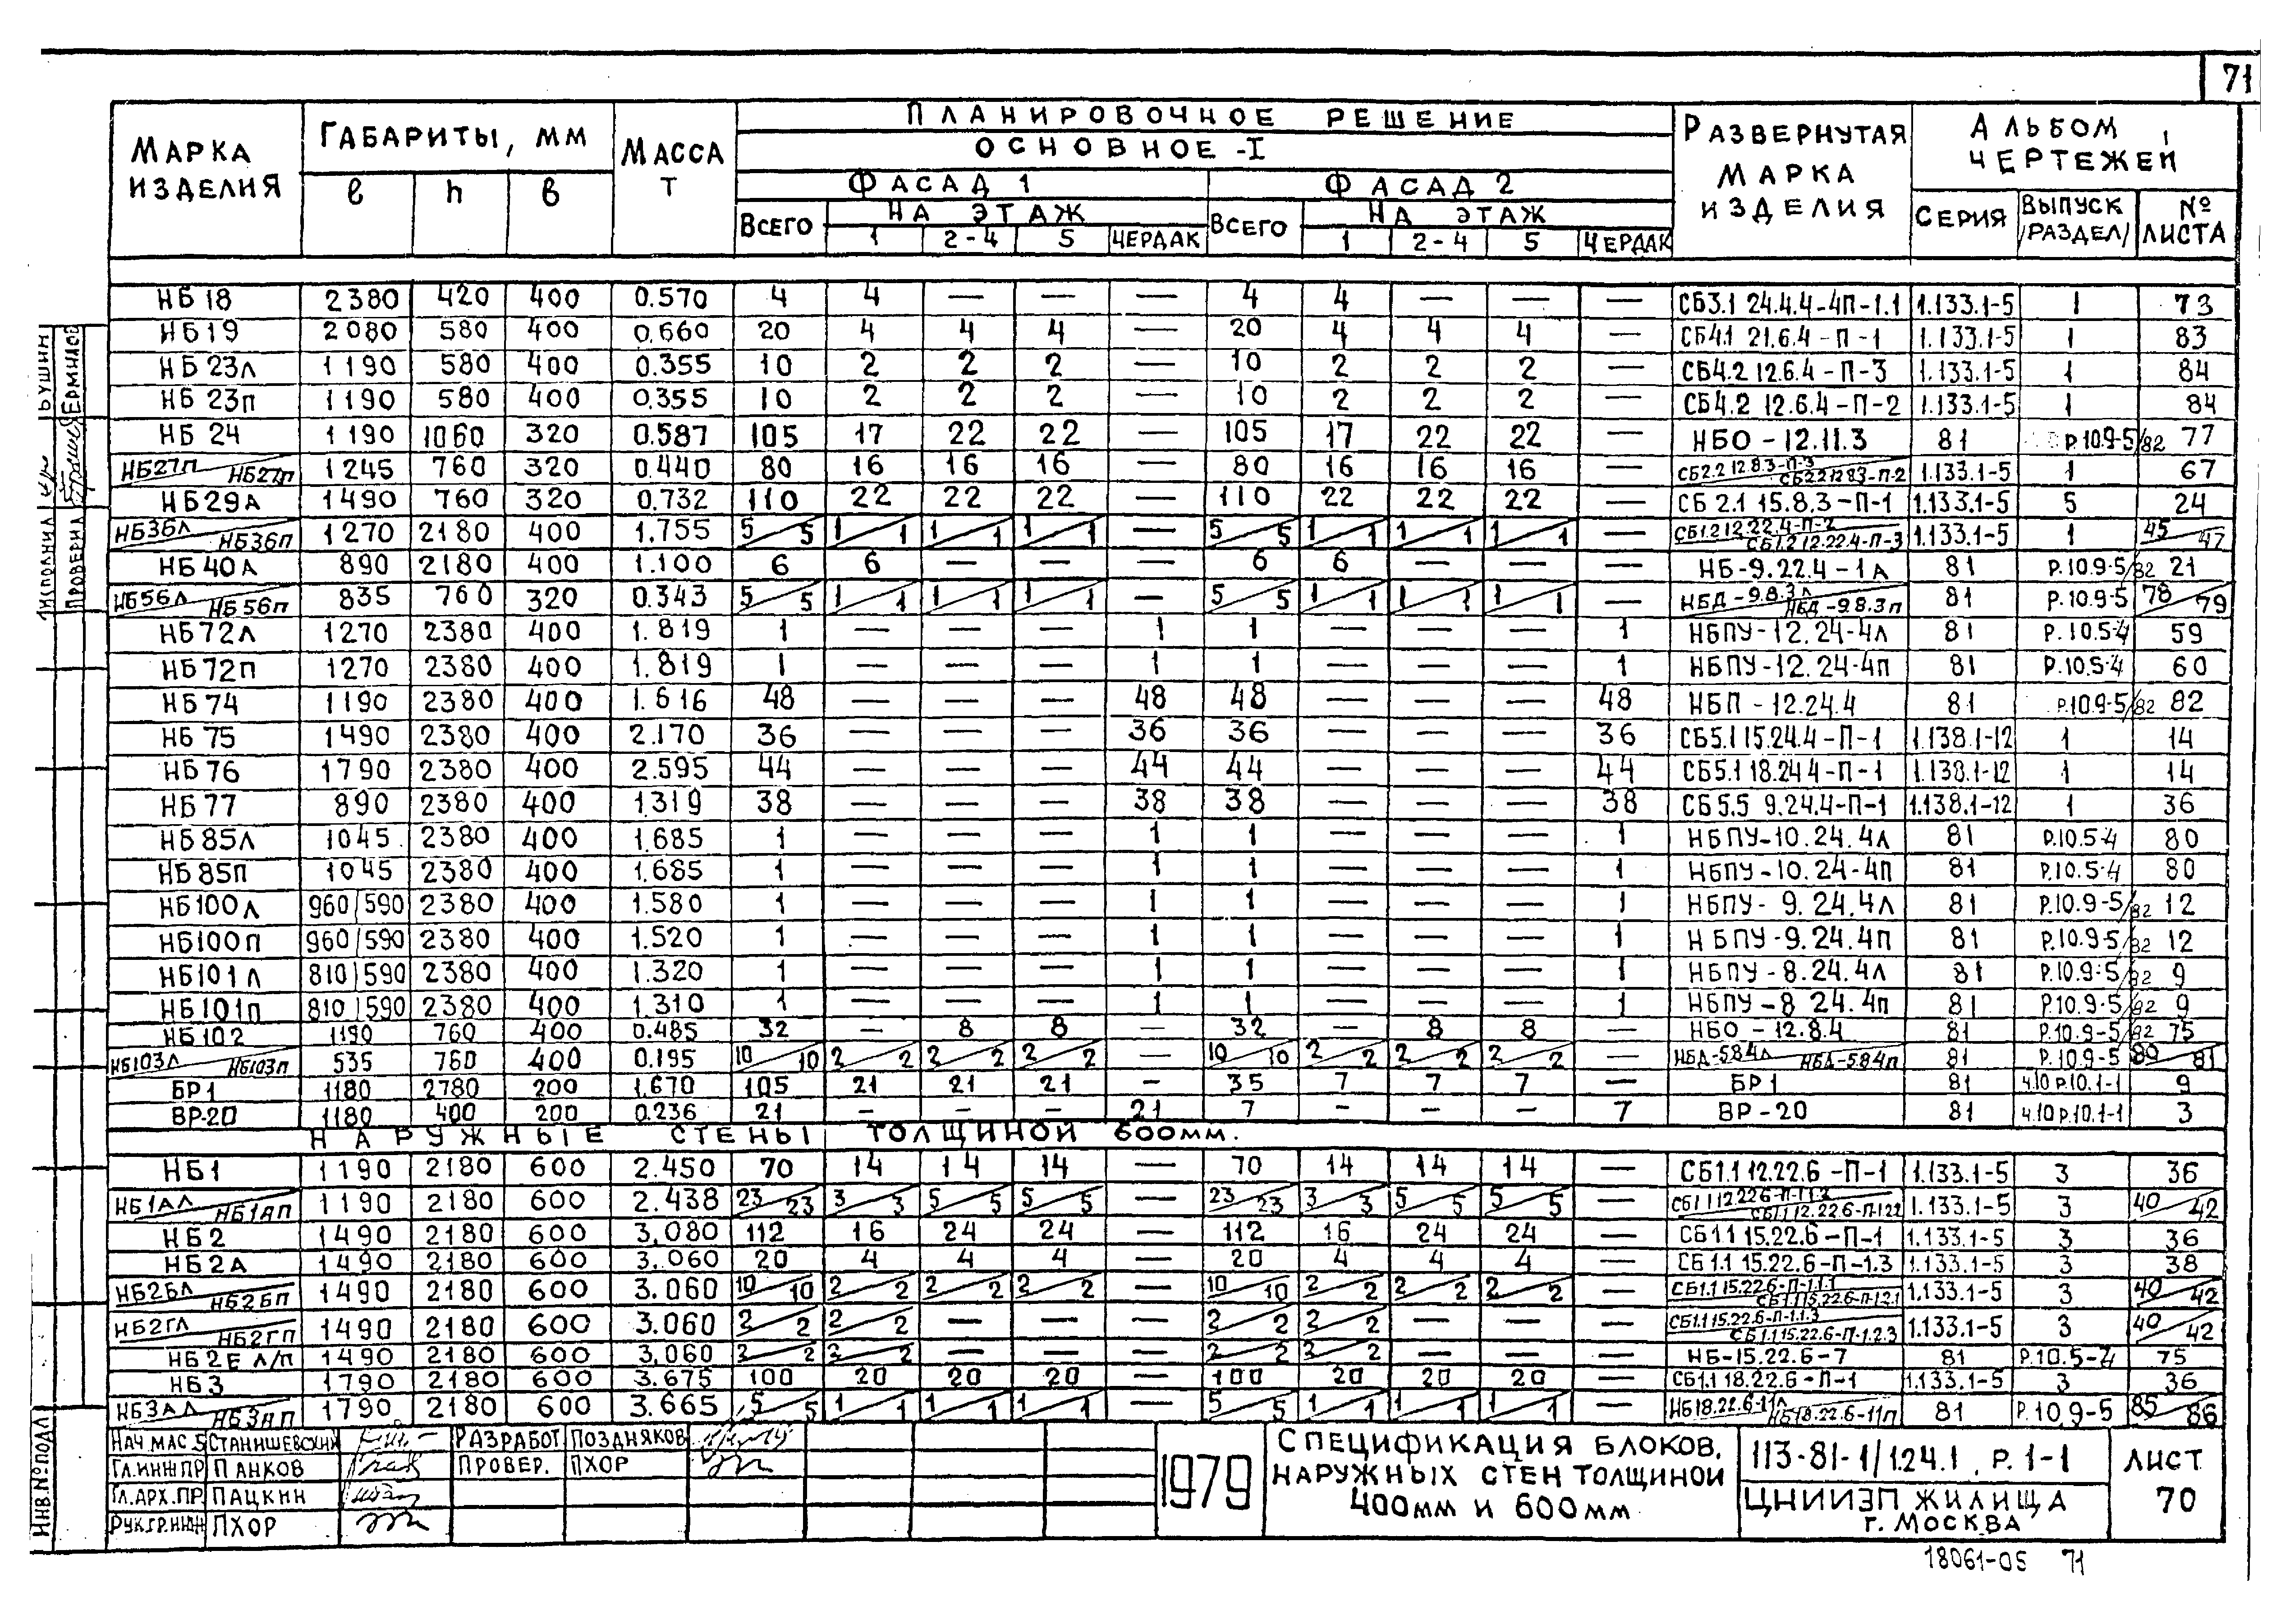 71
МАРКА ИЗДЕЛИЯ | ГАБАРИТЫ, ММ | МАССА Т | ПЛАНИРОВОЧНОЕ РЕШЕНИЕ | РАЗВЕРНУТАЯ МАРКА ИЗДЕЛИЯ | АЛЬБОМ, ЧЕРТЕЖЕЙ
ОСНОВНОЕ-I
ℓ | h | в | ФАСАД 1 | ФАСАД 2
ВСЕГО | НА ЭТАЖ | ВСЕГО | НА ЭТАЖ | СЕРИЯ | ВЫПУСК /РАЗДЕЛ/ | № ЛИСТА
1 | 2-4 | 5 | ЧЕРДАК | 1 | 2-4 | 5 | ЧЕРДАК
НБ 18 | 2380 | 420 | 400 | 0.570 | 4 | 4 | — | — | — | 4 | 4 | — | — | — | СБ3.1 24.4.4-4П-1.1 | 1.133.1-5 | 1 | 73
НБ19 | 2080 | 580 | 400 | 0.660 | 20 | 4 | 4 | 4 | — | 20 | 4 | 4 | 4 | — | СБ4.1 21.6.4-П-1 | 1.133.1-5 | 1 | 83
НБ 23Л | 1190 | 580 | 400 | 0.355 | 10 | 2 | 2 | 2 | — | 10 | 2 | 2 | 2 | — | СБ4.2 12.6.4-П-3 | 1.133.1-5 | 1 | 84
НБ 23П | 1190 | 580 | 400 | 0.355 | 10 | 2 | 2 | 2 | — | 10 | 2 | 2 | 2 | — | СБ4.2 12.6.4-П-2 | 1.133.1-5 | 1 | 84
НБ 24 | 1190 | 1060 | 320 | 0.587 | 105 | 17 | 22 | 22 | — | 105 | 17 | 22 | 22 | — | НБО-12.11.3 | 81 | Р.10.9-5/82 | 77
НБ27П/НБ27П | 1245 | 760 | 320 | 0.440 | 80 | 16 | 16 | 16 | — | 80 | 16 | 16 | 16 | — | СБ2.2 12.8.3-П-3/СБ2.2 12.8.3-П-2 | 1.133.1-5 | 1 | 67
НБ29А | 1490 | 760 | 320 | 0.732 | 110 | 22 | 22 | 22 | — | 110 | 22 | 22 | 22 | — | СБ 2.1 15.8.3-П-1 | 1.133.1-5 | 5 | 24
НБ36Л/НБ36П | 1270 | 2180 | 400 | 1.755 | 5/5 | 1/1 | 1/1 | 1/1 | — | 5/5 | 1/1 | 1/1 | 1/1 | — | СБ1.2 12.22.4-П-2/СБ1.2 12.22.4-П-3 | 1.133.1-5 | 1 | 45/47
НБ 40А | 890 | 2180 | 400 | 1.100 | 6 | 6 | — | — | — | 6 | 6 | — | — | — | НБ-9.22.4-1А | 81 | Р.10.9-5/82 | 21
НБ56Л/НБ56П | 835 | 760 | 320 | 0.343 | 5/5 | 1/1 | 1/1 | 1/1 | — | 5/5 | 1/1 | 1/1 | 1/1 | — | НБД-9.8.3Л/НБД-9.8.3П | 81 | Р.10.9-5 | 78/79
НБ72Л | 1270 | 2380 | 400 | 1.819 | 1 | — | — | — | 1 | 1 | — | — | — | 1 | НБПУ-12.24-4Л | 81 | Р.10.5-4 | 59
НБ72П | 1270 | 2380 | 400 | 1.819 | 1 | — | — | — | 1 | 1 | — | — | — | 1 | НБПУ-12.24-4П | 81 | Р.10.5-4 | 60
НБ 74 | 1190 | 2380 | 400 | 1.616 | 48 | — | — | — | 48 | 48 | — | — | — | 48 | НБП-12.24.4 | 81 | Р.10.9-5/82 | 82
НБ 75 | 1490 | 2380 | 400 | 2.170 | 36 | — | — | — | 36 | 36 | — | — | — | 36 | СБ5.1 15.24.4-П-1 | 1.138.1-12 | 1 | 14
НБ 76 | 1790 | 2380 | 400 | 2.595 | 44 | — | — | — | 44 | 44 | — | — | — | 44 | СБ5.1 18.24 4-П-1 | 1.138.1-12 | 1 | 14
НБ 77 | 890 | 2380 | 400 | 1.319 | 38 | — | — | — | 38 | 38 | — | — | — | 38 | СБ5.5 9.24.4-П-1 | 1.138.1-12 | 1 | 36
НБ85Л | 1045 | 2380 | 400 | 1.685 | 1 | — | — | — | 1 | 1 | — | — | — | 1 | НБПУ-10.24.4Л | 81 | Р.10.5-4 | 80
НБ85П | 1045 | 2380 | 400 | 1.685 | 1 | — | — | — | 1 | 1 | — | — | — | 1 | НБПУ-10.24-4П | 81 | Р.10.5-4 | 80
НБ100Л | 960/590 | 2380 | 400 | 1.580 | 1 | — | — | — | 1 | 1 | — | — | — | 1 | НБПУ-9.24.4Л | 81 | Р.10.9-5/82 | 12
НБ100П | 960/590 | 2380 | 400 | 1.520 | 1 | — | — | — | 1 | 1 | — | — | — | 1 | НБПУ-9.24.4П | 81 | Р.10.9-5/82 | 12
НБ101Л | 810/590 | 2380 | 400 | 1.320 | 1 | — | — | — | 1 | 1 | — | — | — | 1 | НБПУ-8.24.4Л | 81 | Р.10.9-5/82 | 9
НБ101П | 810/590 | 2380 | 400 | 1.310 | 1 | — | — | — | 1 | 1 | — | — | — | 1 | НБПУ-8 24.4П | 81 | Р.10.9-5/82 | 9
НБ102 | 1190 | 760 | 400 | 0.485 | 32 | — | 8 | 8 | — | 32 | — | 8 | 8 | — | НБО-12.8.4 | 81 | Р.10.9-5/82 | 75
НБ103Л/НБ103П | 535 | 760 | 400 | 0.195 | 10/10 | 2/2 | 2/2 | 2/2 | — | 10/10 | 2/2 | 2/2 | 2/2 | — | НБД-5.8.4Л/НБД-5.8.4П | 81 | Р.10.9-5 | 80/81
БР1 | 1180 | 2780 | 200 | 1.670 | 105 | 21 | 21 | 21 | — | 35 | 7 | 7 | 7 | — | БР1 | 81 | ч.10 Р.10.1-1 | 9
ВР-20 | 1180 | 400 | 200 | 0.236 | 21 | — | — | — | 21 | 7 | — | — | — | 7 | ВР-20 | 81 | ч.10 Р.10.1-1 | 3
НАРУЖНЫЕ СТЕНЫ ТОЛЩИНОЙ 600ММ.
НБ1 | 1190 | 2180 | 600 | 2.450 | 70 | 14 | 14 | 14 | — | 70 | 14 | 14 | 14 | — | СБ1.1 12.22.6-П-1 | 1.133.1-5 | 3 | 36
НБ1АЛ/НБ1АП | 1190 | 2180 | 600 | 2.438 | 23/23 | 3/3 | 5/5 | 5/5 | — | 23/23 | 3/3 | 5/5 | 5/5 | — | СБ1.1 12.22.6-П-1.1.2/СБ1.1 12.22.6-П-1.2.2 | 1.133.1-5 | 3 | 40/42
НБ2 | 1490 | 2180 | 600 | 3,080 | 112 | 16 | 24 | 24 | — | 112 | 16 | 24 | 24 | — | СБ1.1 15.22.6-П-1 | 1.133.1-5 | 3 | 36
НБ2А | 1490 | 2180 | 600 | 3.060 | 20 | 4 | 4 | 4 | — | 20 | 4 | 4 | 4 | — | СБ 1.1 15.22.6-П-1.3 | 1.133.1-5 | 3 | 38
НБ2БЛ/НБ2БП | 1490 | 2180 | 600 | 3.060 | 10/10 | 2/2 | 2/2 | 2/2 | — | 10/10 | 2/2 | 2/2 | 2/2 | — | СБ1.1 15.22.6-П-1.1.1/СБ1.1 15.22.6-П-1.2.1 | 1.133.1-5 | 3 | 40/42
НБ2ГЛ/НБ2ГП | 1490 | 2180 | 600 | 3.060 | 2/2 | 2/2 | — | — | — | 2/2 | 2/2 | — | — | — | СБ1.1 15.22.6-П-1.1.3/СБ1.1 15.22.6-П-1.2.3 | 1.133.1-5 | 3 | 40/42
НБ2Е Л/П | 1490 | 2180 | 600 | 3.060 | 2/2 | 2/2 | — | — | — | 2/2 | 2/2 | — | — | — | НБ-15.22.6-7 | 81 | Р.10.5-4 | 75
НБ3 | 1790 | 2180 | 600 | 3.675 | 100 | 20 | 20 | 20 | — | 100 | 20 | 20 | 20 | — | СБ1.1 18.22.6-П-1 | 1.133.1-5 | 3 | 36
НБ3АЛ/НБ3АП | 1790 | 2180 | 600 | 3.665 | 5/5 | 1/1 | 1/1 | 1/1 | — | 5/5 | 1/1 | 1/1 | 1/1 | — | НБ18.22.6-11Л/НБ18.22.6-11П | 81 | Р.10.9-5 | 85/86
НАЧ.МАС 5 СТАНИШЕВСКИЙ РАЗРАБОТ. ПОЗДНЯКОВ
ГЛ.ИНЖ ПР ПАНКОВ ПРОВЕР. ПХОР
ГЛ.АРХ.ПР. ПАЦКИН
РУК.ГР.ИНЖ ПХОР
1979
СПЕЦИФИКАЦИЯ БЛОКОВ,
НАРУЖНЫХ СТЕН ТОЛЩИНОЙ
400ММ И 600ММ
113-81-1/1.24.1 . Р. 1-1
ЦНИИЭП ЖИЛИЩА
Г. МОСКВА
ЛИСТ
70
18061-05 71
ИСПОЛНИЛ
ПРОВЕРИЛ ЕРМИЛОВ
ИНВ.№ ПОДЛ